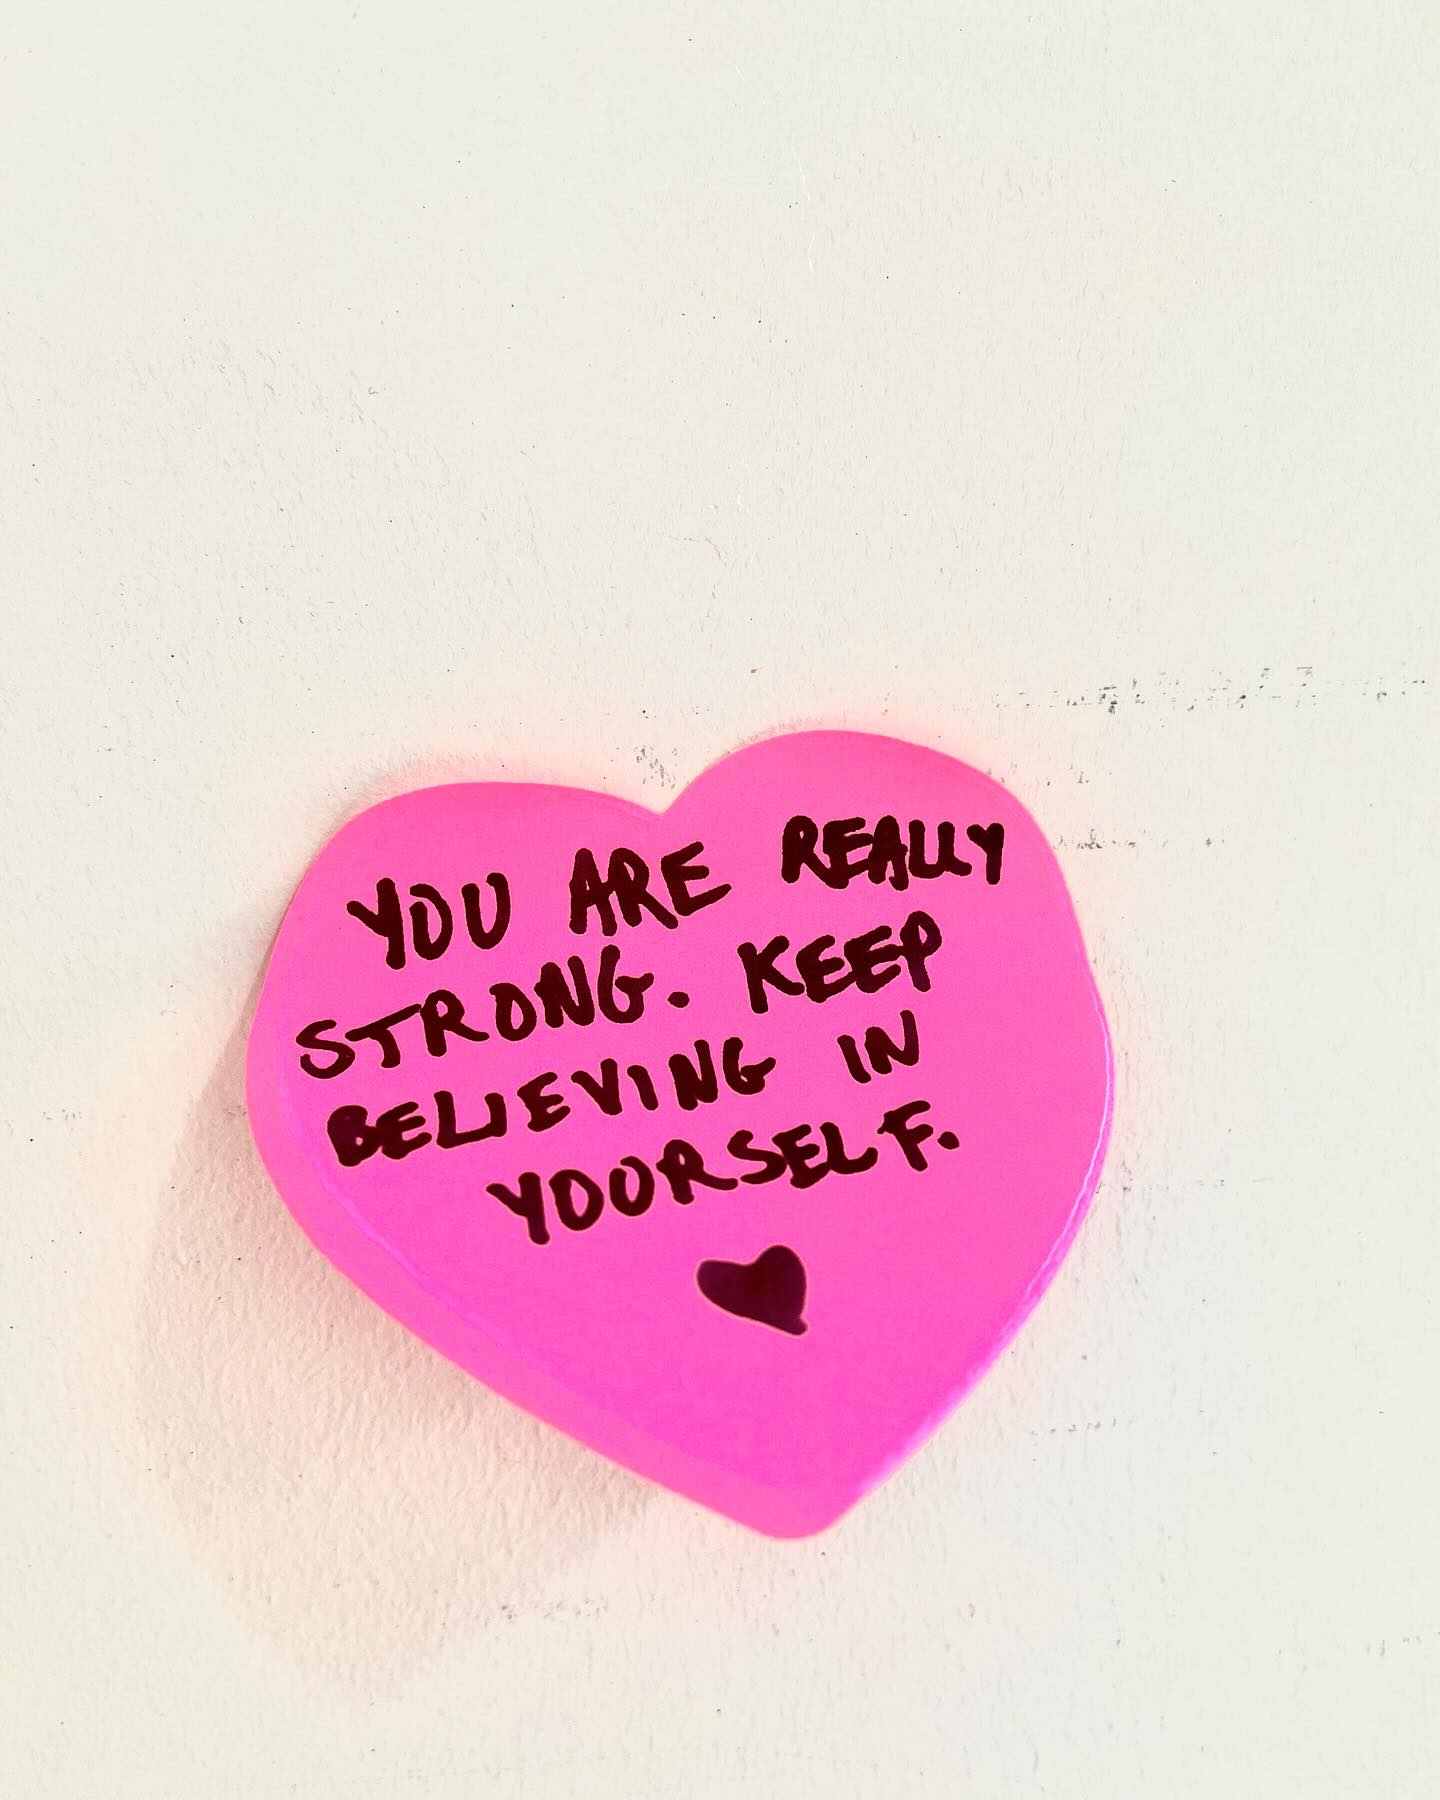 YOU ARE REALLY
STRONG. KEEP
BELIEVING IN
YOURSELF.